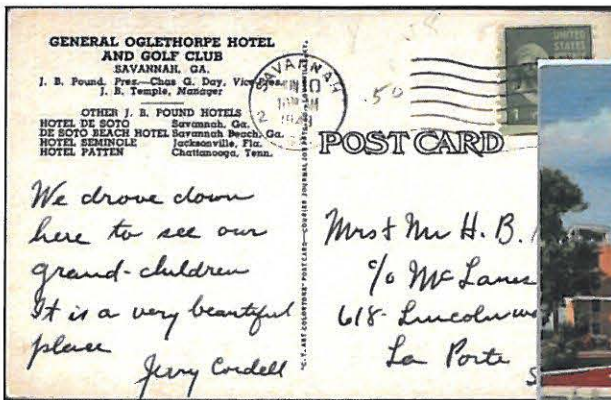 GENERAL OGLETHORPE HOTEL
AND GOLF CLUB
SAVANNAH, GA.
J. B. Pound, Pres.—Chas G. Day, Vice-Pres.
J. B. Temple, Manager
OTHER J. B. POUND HOTELS
HOTEL DE SOTO Savannah, Ga.
DE SOTO BEACH HOTEL Savannah Beach, Ga.
HOTEL SEMINOLE Jacksonville, Fla.
HOTEL PATTEN Chattanooga, Tenn.
We drove down
here to see our
grand-children
It is a very beautiful
place
Jerry Cordell
SAVANNAH
.50
UNITED
STATES
1
POST CARD
Mrs & Mr H. B.
c/o McLanes
618- Lincolnw
La Porte